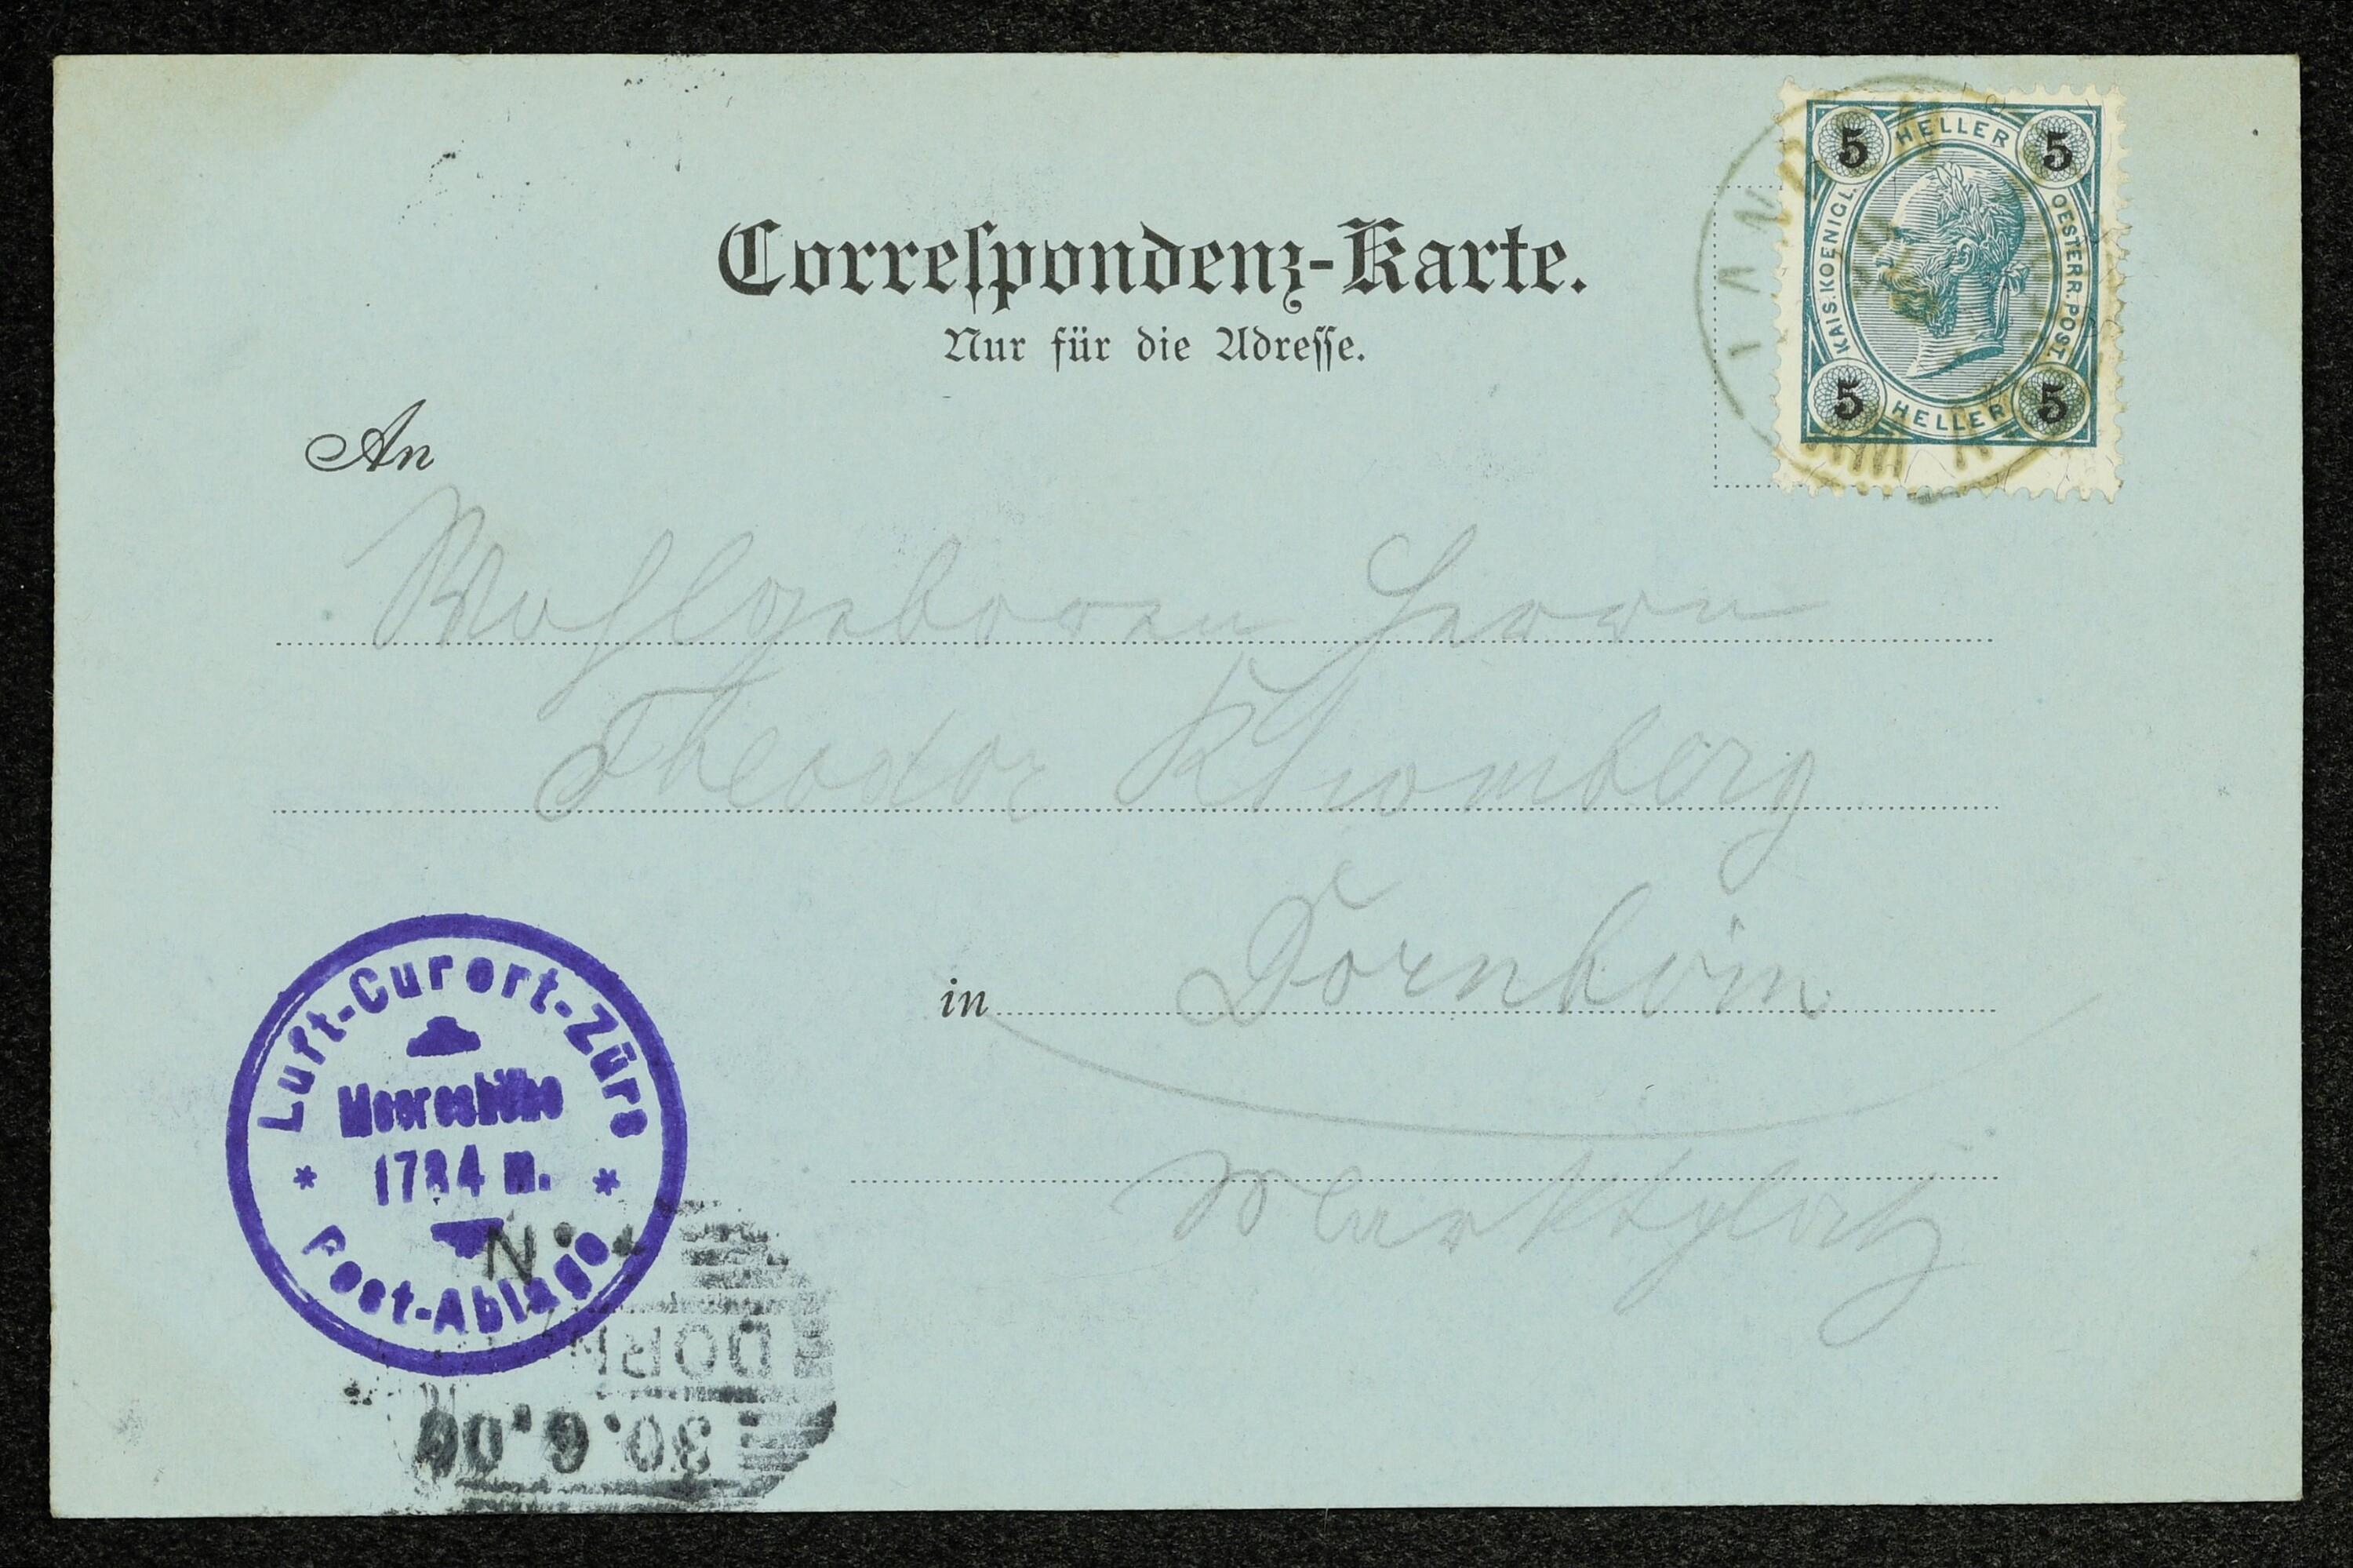 Correspondenz-Karte.
Nur für die Adresse.
5 HELLER 5
KAIS. KOENIGL. OESTERR. POST.
5 HELLER 5
An
Wohlgeboren Herrn
Theodor Rhomberg
in Dornbirn
Marktplatz
Luft-Curort-Zürs
Meereshöhe
1784 m.
Post-Ablage
DORN
30.6.00